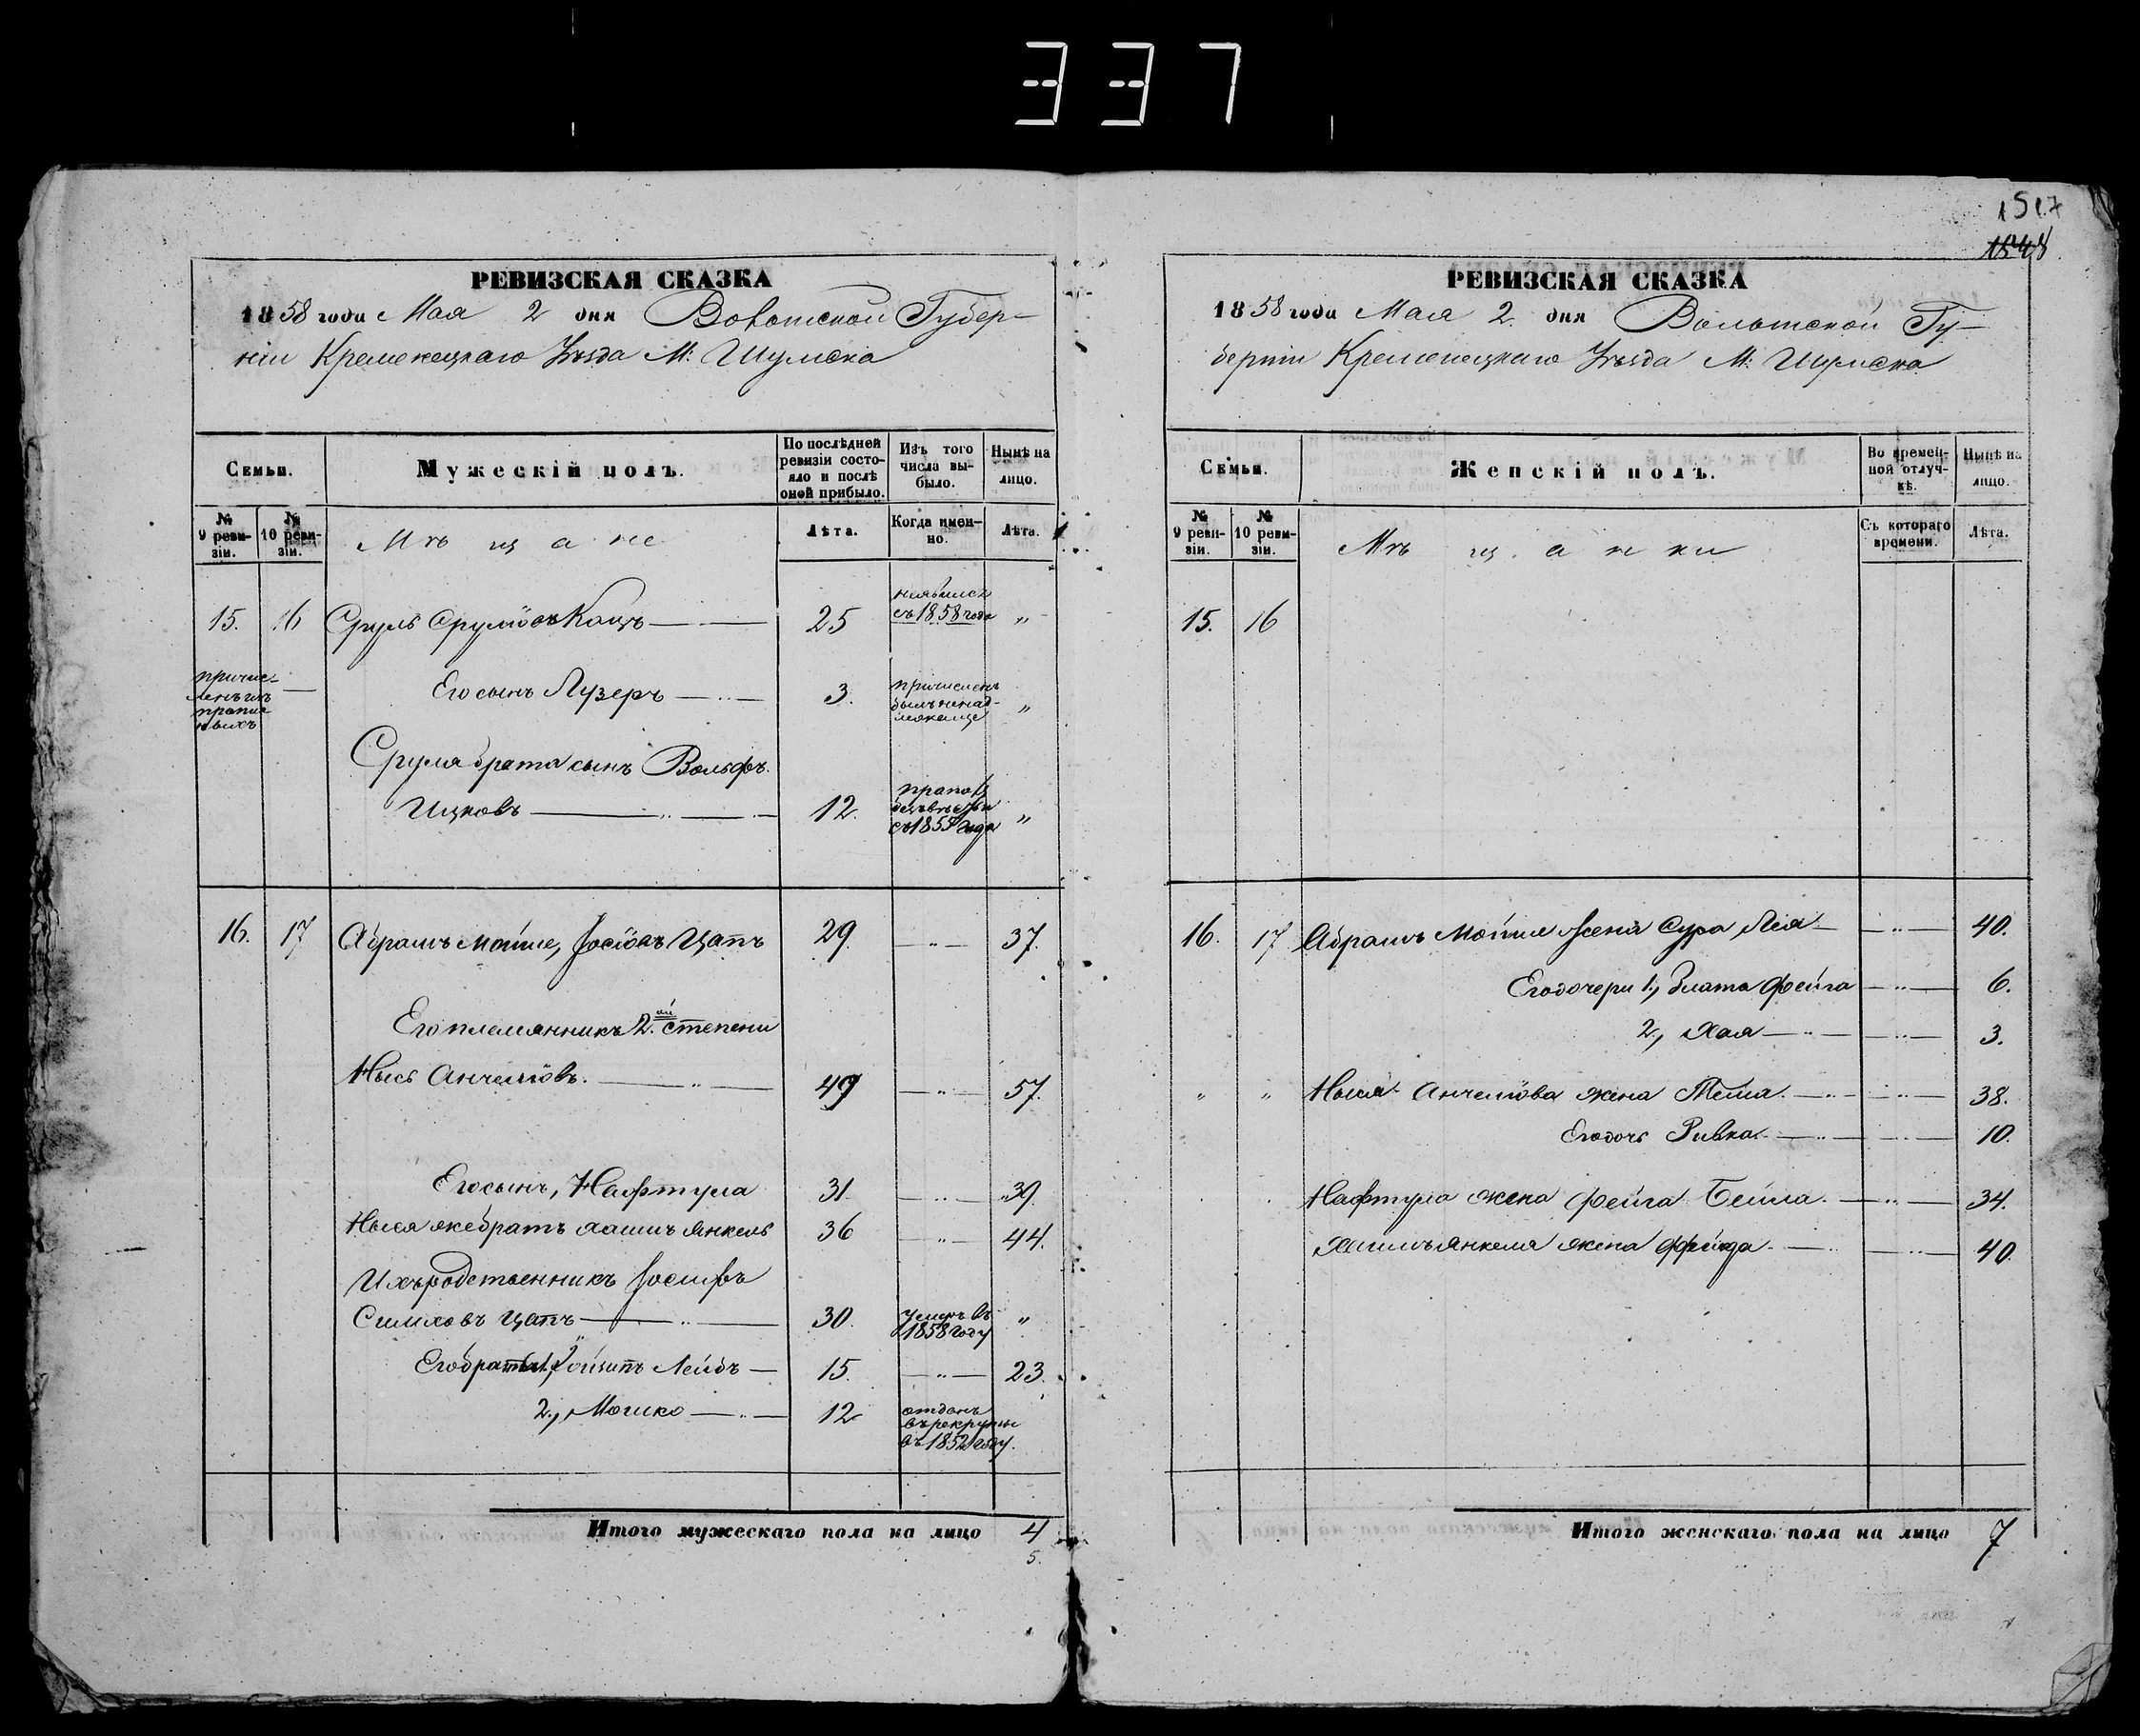 337
1517
1548
РЕВИЗСКАЯ СКАЗКА
1858 года Мая 2 дня Волынской Губер-
ніи Кременецкаго Уѣзда М: Шумска
Семьи.
Мужескій полъ.
По послѣдней ревизіи состо-яло и послѣ оной прибыло.
Изъ того числа вы-было.
Нынѣ на лицо.
№ 9 реви-зіи.
№ 10 реви-зіи.
Мѣщане
Лѣта.
Когда имен-но.
Лѣта.
15. 16 Сруль Срулiовъ Кацъ 25 неявился съ 1858 года „
причис-ленъ изъ пропис-ныхъ
Его сынъ Лузеръ 3. причисленъ былъ ненад-лежаще „
Сруля брата сынъ Вольфъ
Ицковъ 12. съ 1857 года „
16. 17 Абрамъ Мойше, Іосіовъ Цапъ 29. — „ — 37.
Его племянникъ 2ой степени
Нысь Анчеліовъ. — „ — 49 — „ — 57.
Его сынъ, Нафтула 31. — „ — 39.
Нысяже братъ Хаимъ Янкель 36 — „ — 44.
Ихъ родственникъ Іосифъ
Симховъ Цапъ — „ — 30. умеръ въ 1858 году „
Его братья 1, Іойсипъ Лейбъ — 15. — „ — 23.
2., Мошко — „ — 12 отданъ въ рекруты въ 1852 году.
Итого мужескаго пола на лицо 4
5.
РЕВИЗСКАЯ СКАЗКА
1858 года Мая 2. дня Волынской Гу-
берніи Кременецкаго Уѣзда М: Шумска
Семьи.
Женскій полъ.
Во времен-ной отлуч-кѣ.
Нынѣ на лицо.
№ 9 реви-зіи.
№ 10 реви-зіи.
Мѣщанки
Съ котораго времени.
Лѣта.
15. 16
16. 17 Абрамъ Мойше жена Сура Лея — „ — 40.
Его дочери 1., Злата Фейга — „ — 6.
2., Хая — „ — — „ — 3.
„ „ Ныся Анчеліова жена Тема. — „ — — „ — 38.
Его дочь Ривка. — „ — — „ — 10.
Нафтула жена Фейга Бейла. — „ — 34.
Хаимъ Янкеля жена Фрейда. — „ — — „ — 40.
Итого женскаго пола на лицо 7